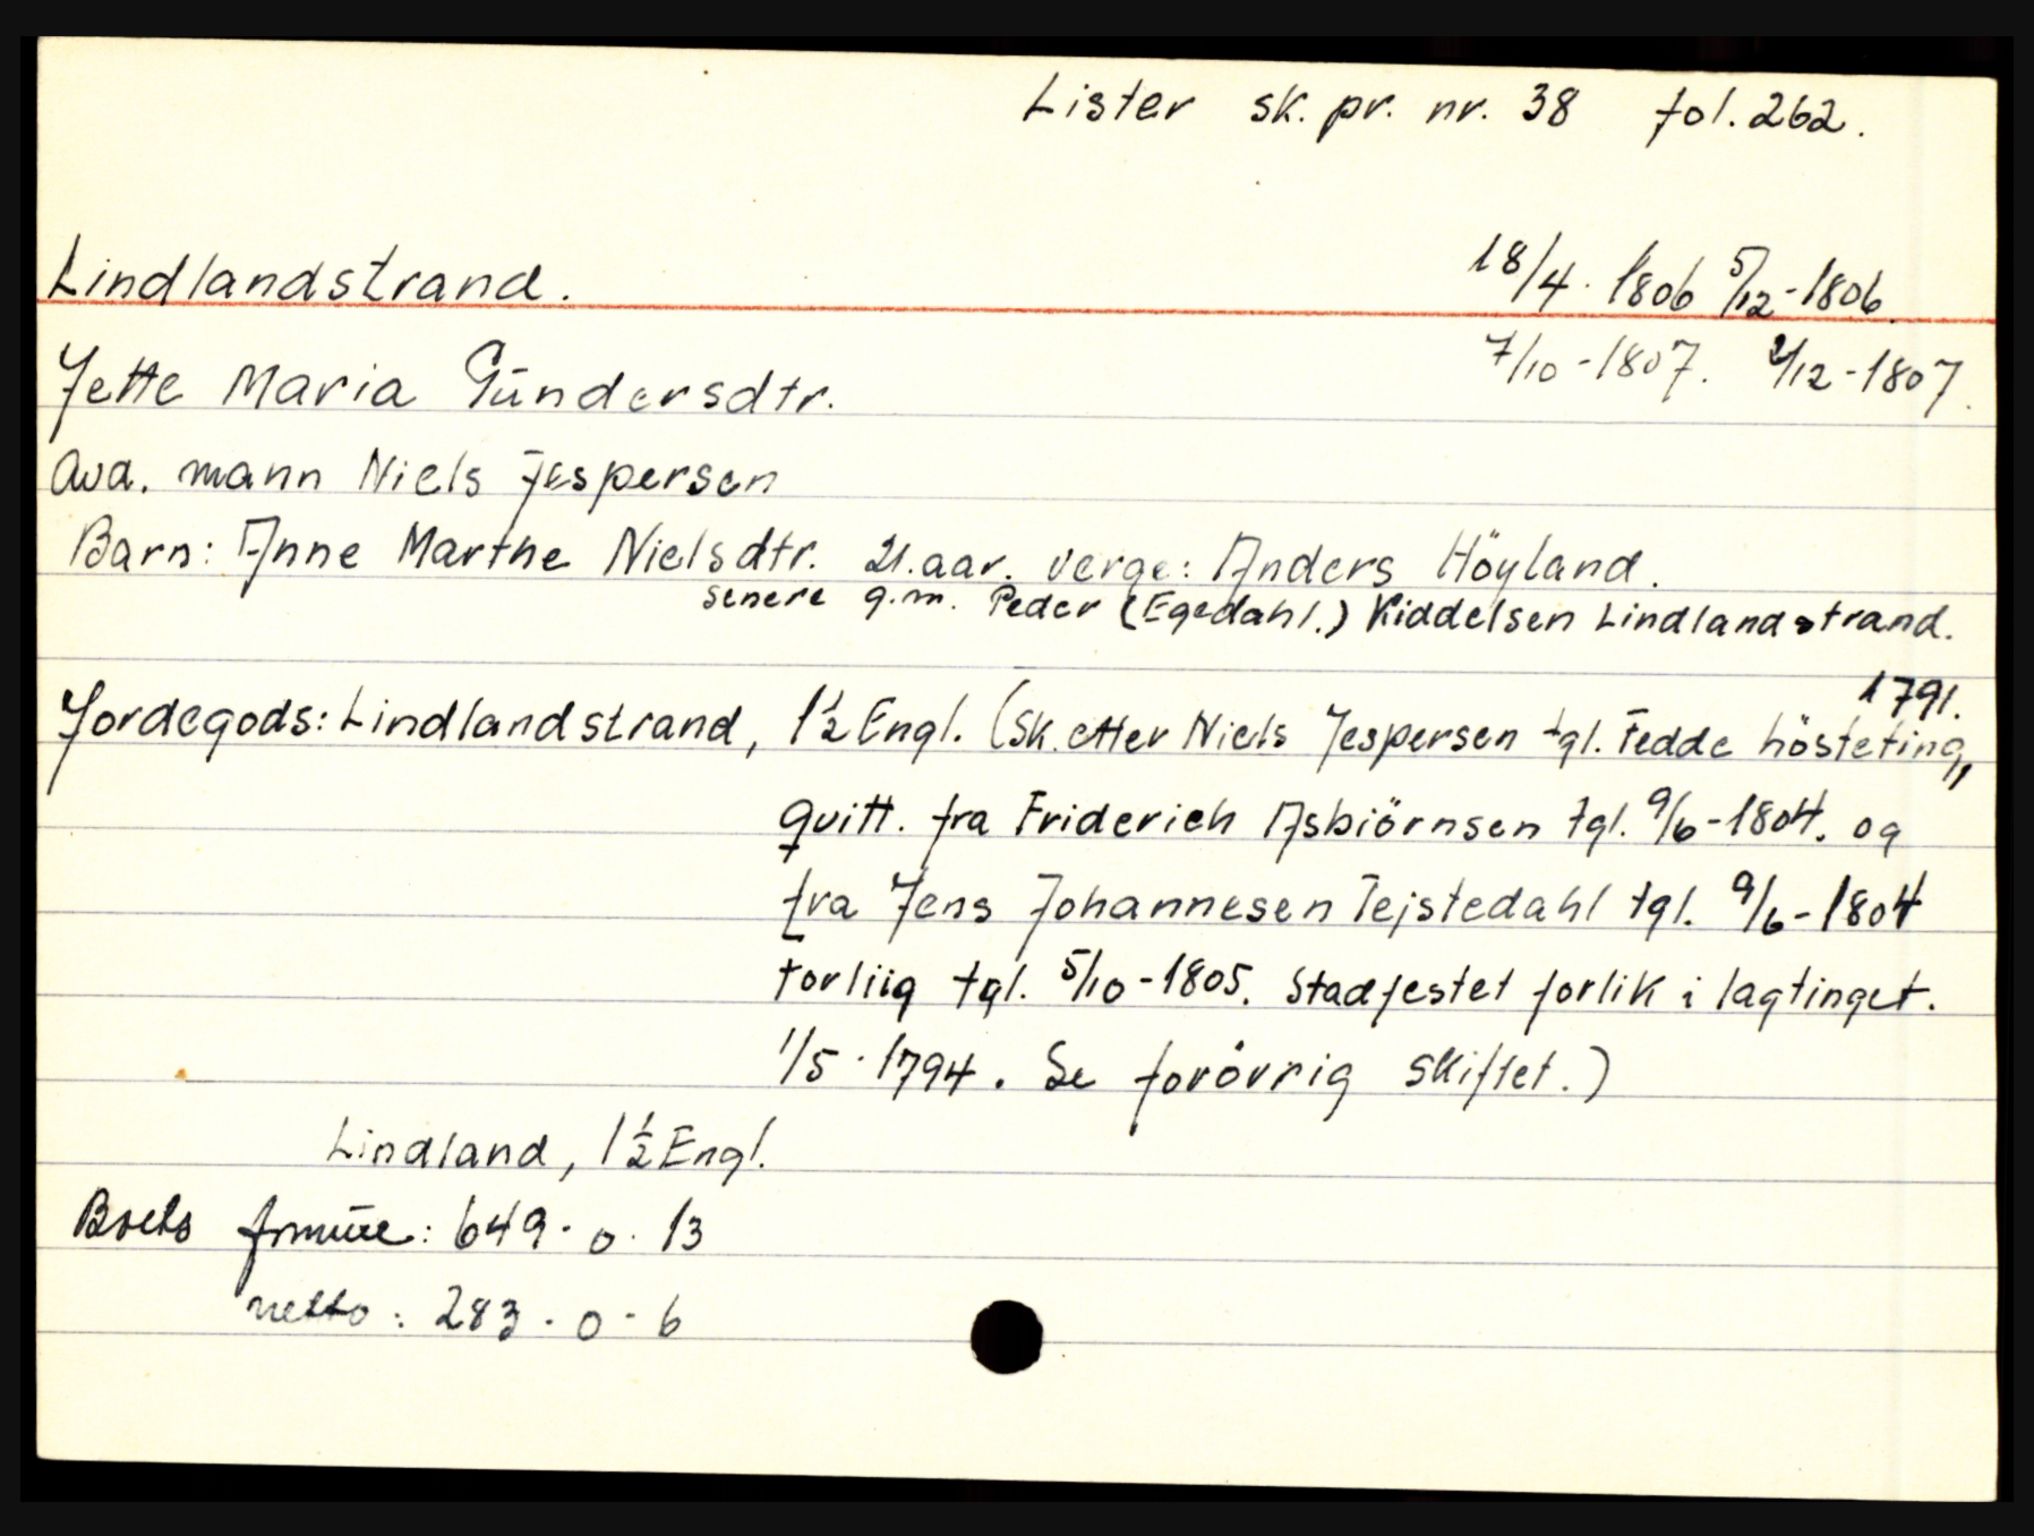 Lister sk. pr. nr. 38 fol. 262.
Lindlandstrand. 18/4. 1806 5/12-1806.
Jette Maria Gündersdtr. 7/10-1807. 2/12-1807.
Avd. mann Niels Jespersen
Barn: Anne Marthe Nielsdtr. 21. aar. verge: Anders Höyland.
senere g.m. Peder (Egedahl.) Kiddelsen Lindlandstrand.
1791.
Jordegods: Lindlandstrand, 1½ Engl. (Sk. etter Niels Jespersen tgl. Fedde hösteting,
quitt. fra Friderich Asbiörnsen tgl. 9/6-1804. og
fra Jens Johannesen Tejstedahl tgl. 9/6-1804
Forliig tgl. 5/10-1805. Stadfestet forlik i lagtinget.
1/5. 1794. Se forövrig skiftet.)
Lindland, 1½ Engl.
Boets formüe: 649. 0. 13
netto: 283. 0-6